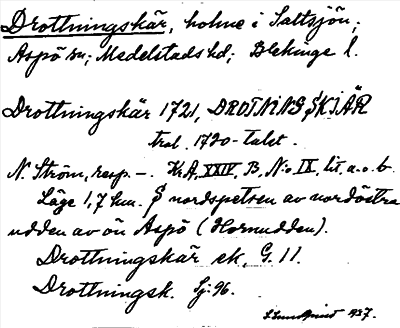 Drottningskär, holme i Saltsjön;
Aspö sn; Medelstads hd; Blekinge l.
Drottningskär 1721, DROTNINGSKIÄR
trol. 1720-talet.
N. Ström, resp. –. Kr.A. XXIV, B, N:o IX, lit. a. o. b.
Läge 1,7 km. S nordspetsen av nordöstra
udden av ön Aspö (Hornudden).
Drottningskär ek. G. 11.
Drottningsk. Sj. 96.
1937.